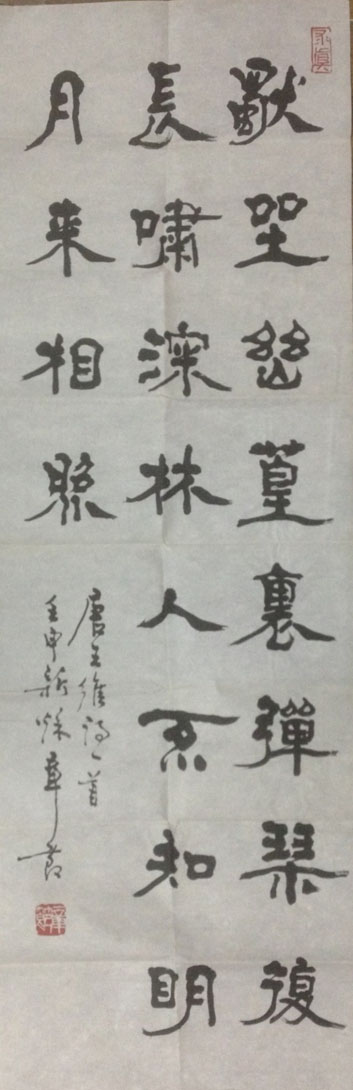 求真
獨坐幽篁裏彈琴復
長嘯深林人不知明
月来相照
唐王維诗一首
壬申新秋章